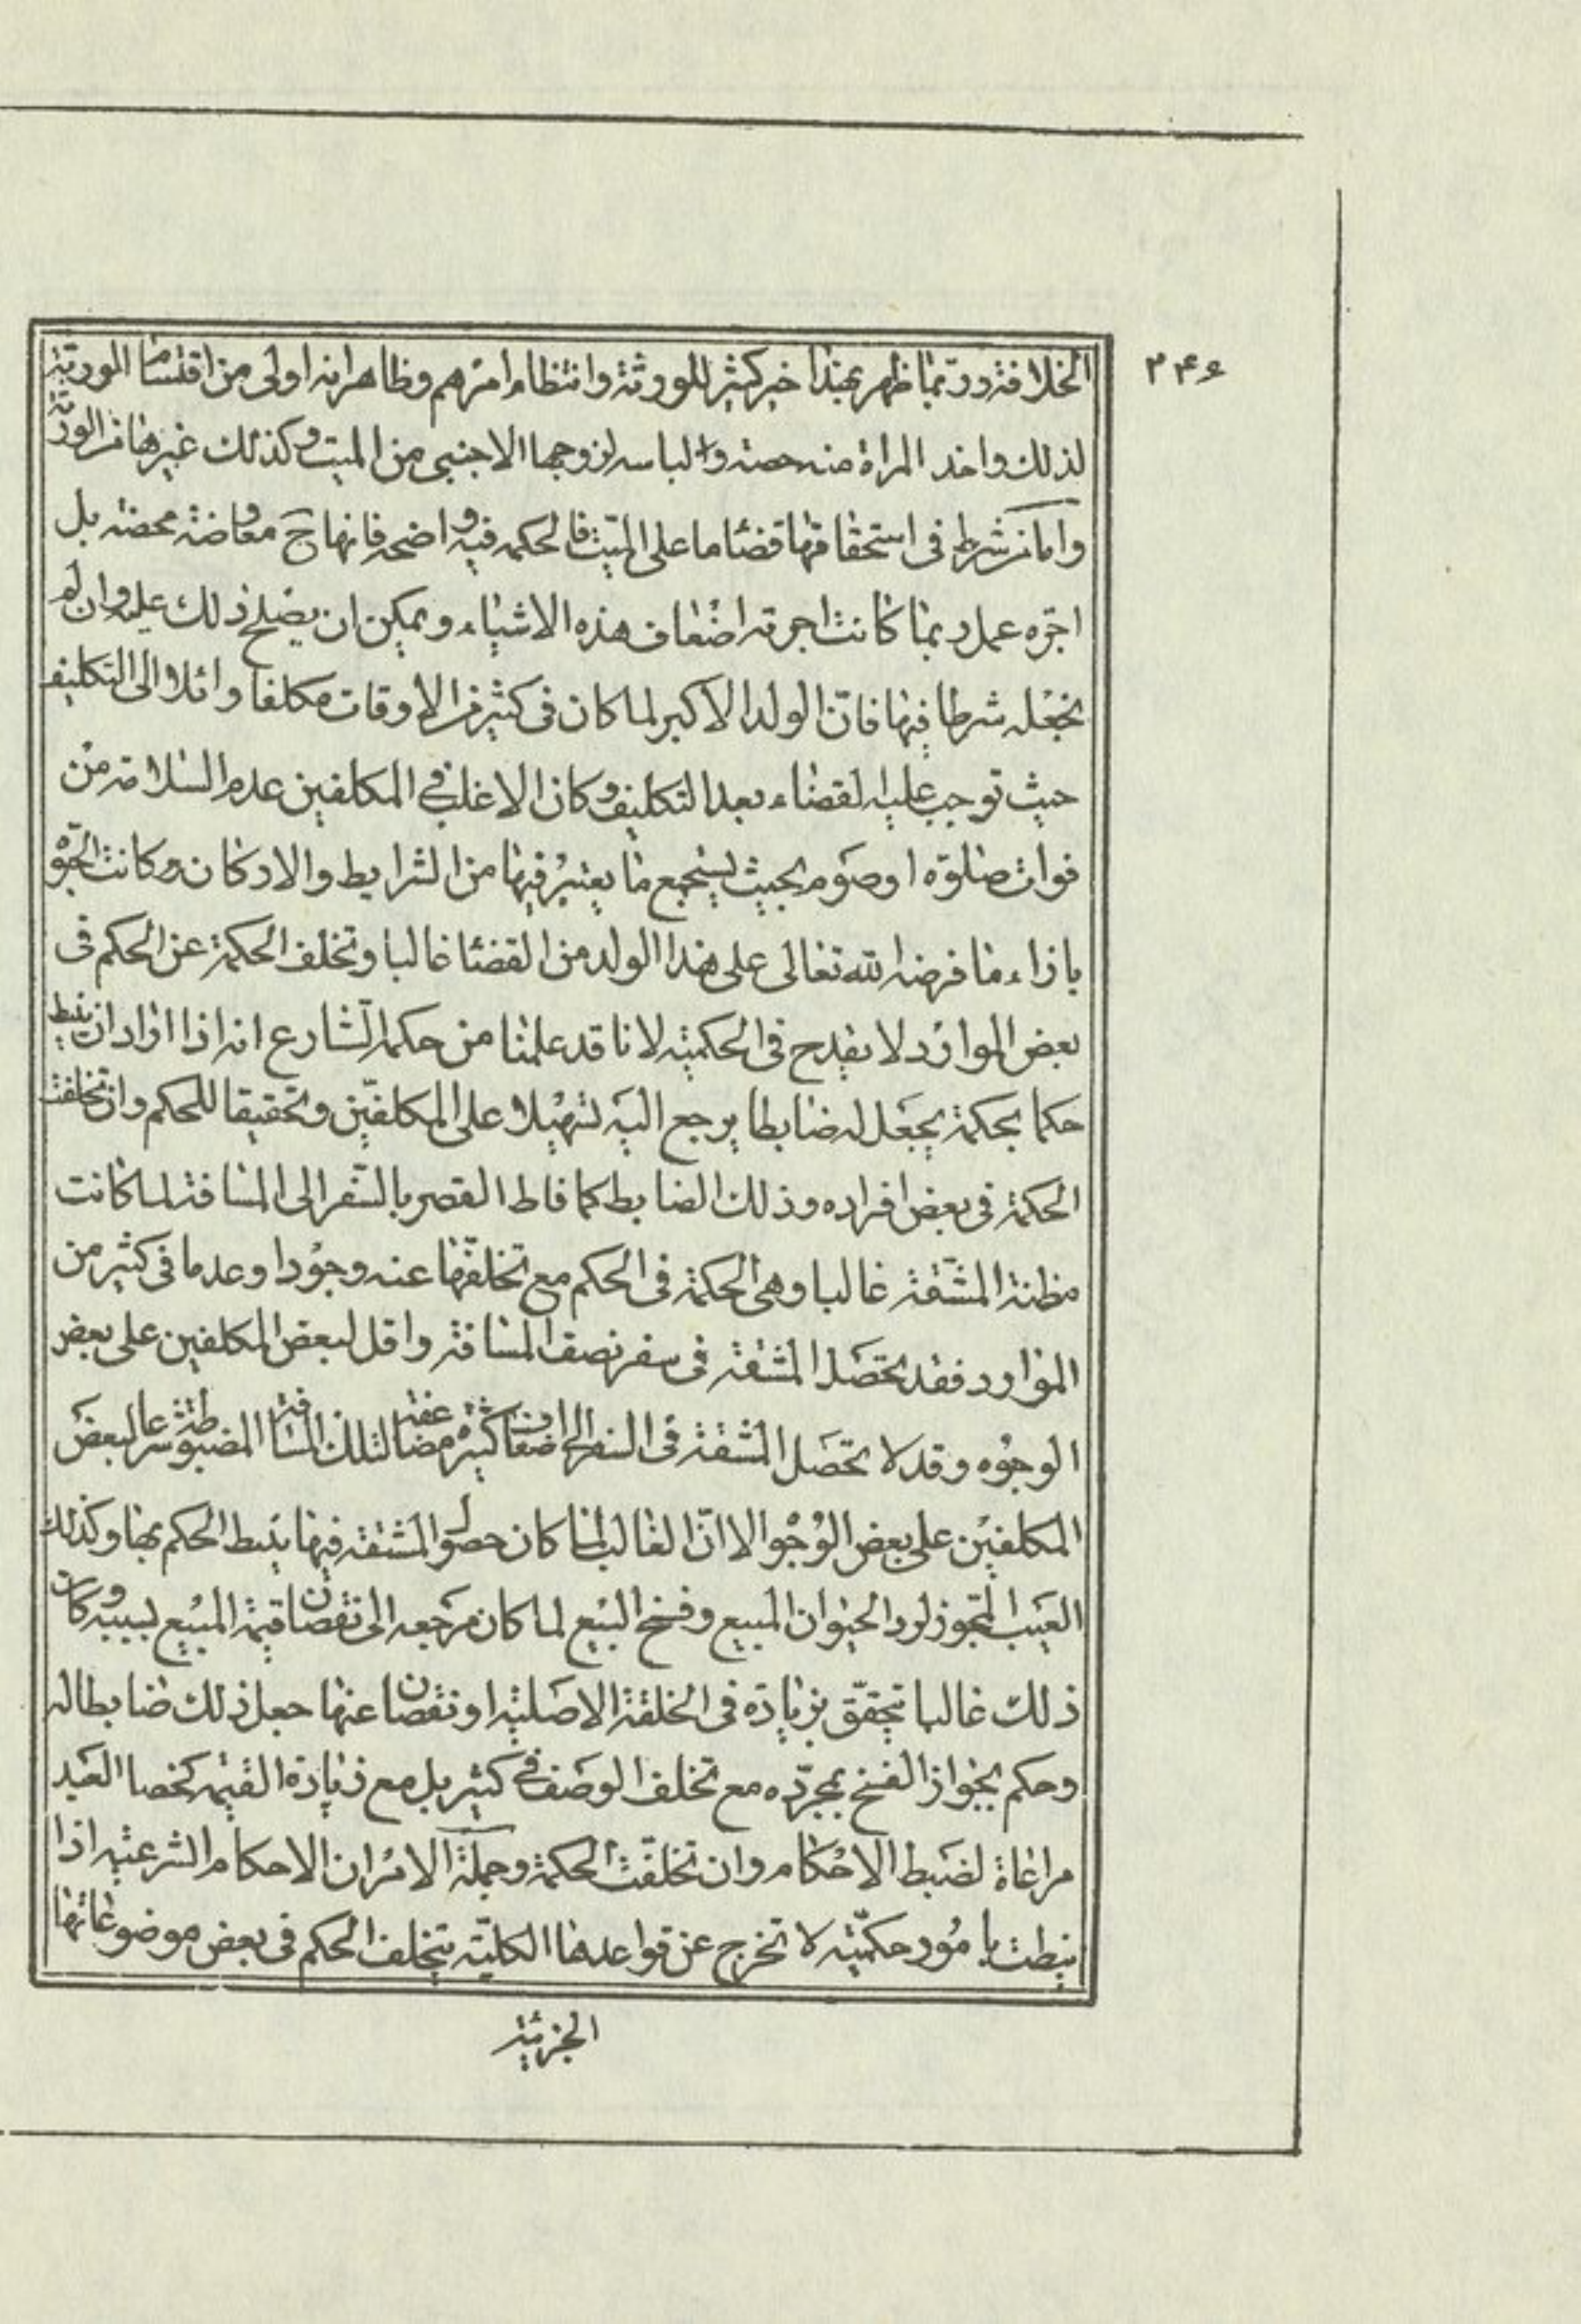 ۲۴۶
الخلافة وربّما ظهر بهذا خير كثير للورثة وانتظام امرهم وظاهر انه اولى من اقتسام الورثة
لذلك واخذ المراة منه حصته والباسه لزوجها الاجنبى من الميت وكذلك غيرها من الورثة
واما من شرط فى استحقاقها قضاء ما على الميّت فالحكمه فيه واضحه فانها ح معاوضة محضه بل
اجره عمل ربما كانت اجرته اضعاف هذه الاشياء ويمكن ان يصلح ذلك عليه وان لم
نجعله شرطا فيها فانّ الولد الاكبر لما كان فى كثير من الاوقات مكلفا وائلا الى التكليف
حيث توجب عليه القضاء بعد التكليف وكان الاغلب فى المكلفين عدم السلامة من
فوات صلوة او صوم بحيث يستجمع ما يعتبر فيها من الشرايط والاركان وكانت الحبوة
بازاء ما فرضه الله تعالى على هذا الولد من القضاء غالبا وتخلف الحكمة عن الحكم فى
بعض الموارد لا يقدح فى الحكميّه لانا قد علمنا من حكم الشارع انه اذا اراد ان ينيط
حكما بحكمة يجعل له ضابطا يرجع اليه تسهيلا على المكلفين وتحقيقا للحكم وان تخلفت
الحكمة فى بعض افراده وذلك الضابط كما فاط القصر بالسّفر الى المسافة لما كانت
مظنة المشّقة غالبا وهى الحكمة فى الحكم مع تخلفها عنه وجودا وعدما فى كثير من
الموارد فقد تحصل المشقة فى سفر نصف المسافة واقل لبعض المكلفين على بعض
الوجوه وقد لا تحصل المشقة فى السفر الى اضعاف كثيرة مضاعفة لتلك المسافة المضبوطة شرعا لبعض
المكلفين على بعض الوجوه الا انّ الغالب لما كان حصول المشقه فيها ينيط الحكم بها وكذلك
العيب المجوز لرد الحيوان المبيع وفسخ البيع لما كان مرجعه الى نقصان قيمة المبيع بسببه وكان
ذلك غالبا تحقّق بزيادة فى الخلقة الاصليّه او نقصان عنها جعل ذلك ضابطا له
وحكم بجواز الفسخ بمجرّده مع تخلف الوصف فى كثير بل مع زيادة القيمه كخصا العبد
مراعاة لضبط الاحكام وان تخلفت الحكمة وجملة الامر ان الاحكام الشرعيّه اذا
نيطت بامور حكميّه لا تخرج عن قواعدها الكليّه بتخلف الحكم فى بعض موضوعاتها
الجزئية